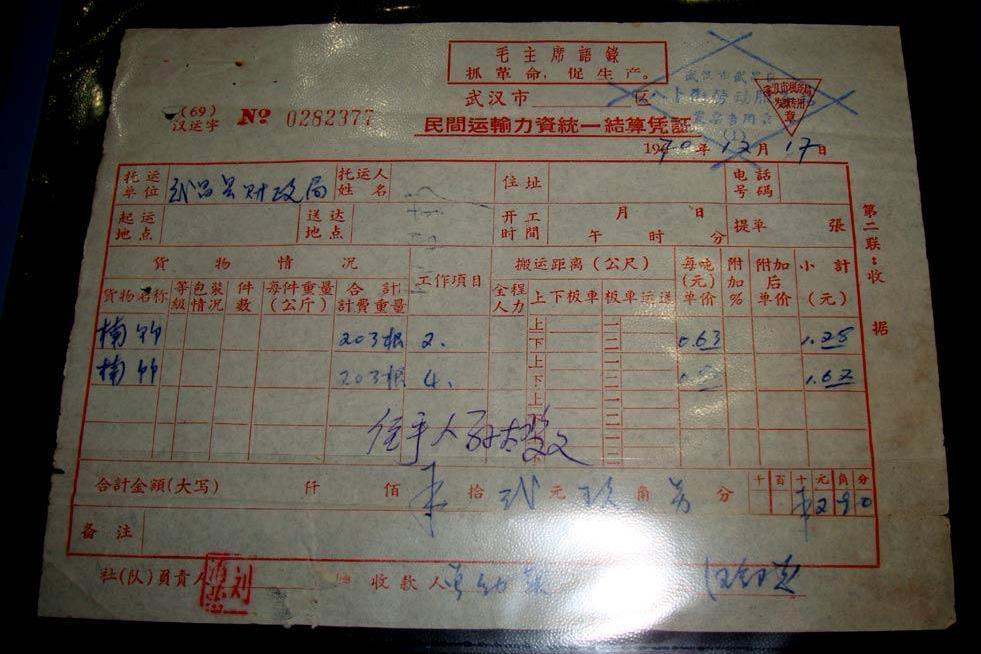 毛主席語錄
抓革命，促生产。
武汉市 区
(69)
汉运字 No 0282377
民間运輸力資統一結算凭証
1970年12月17日
托运单位 武昌县财政局 托运人姓名 住址 电話号碼
起运地点 送达地点 开工时間 月 日 午 时 分 提单 張
貨物情况 工作項目 搬运距离（公尺） 每吨（元）单价 附加% 附加后单价 小計（元）
貨物名称 等級 包装情况 件数 每件重量（公斤） 合計計費重量 全程人力 上下板車 板車运送
楠竹 203根 2. 上 下 一 二 0.63 1.25
楠竹 203根 4. 上 下 一 二 1.67
上 下 一 二
经手人
合計金額(大写) 仟 佰 拾 弍 元 玖 角 分 千 百 十 元 角 分 2 9 0
备注
社(队)負責人 刘 收款人
第二联：收据